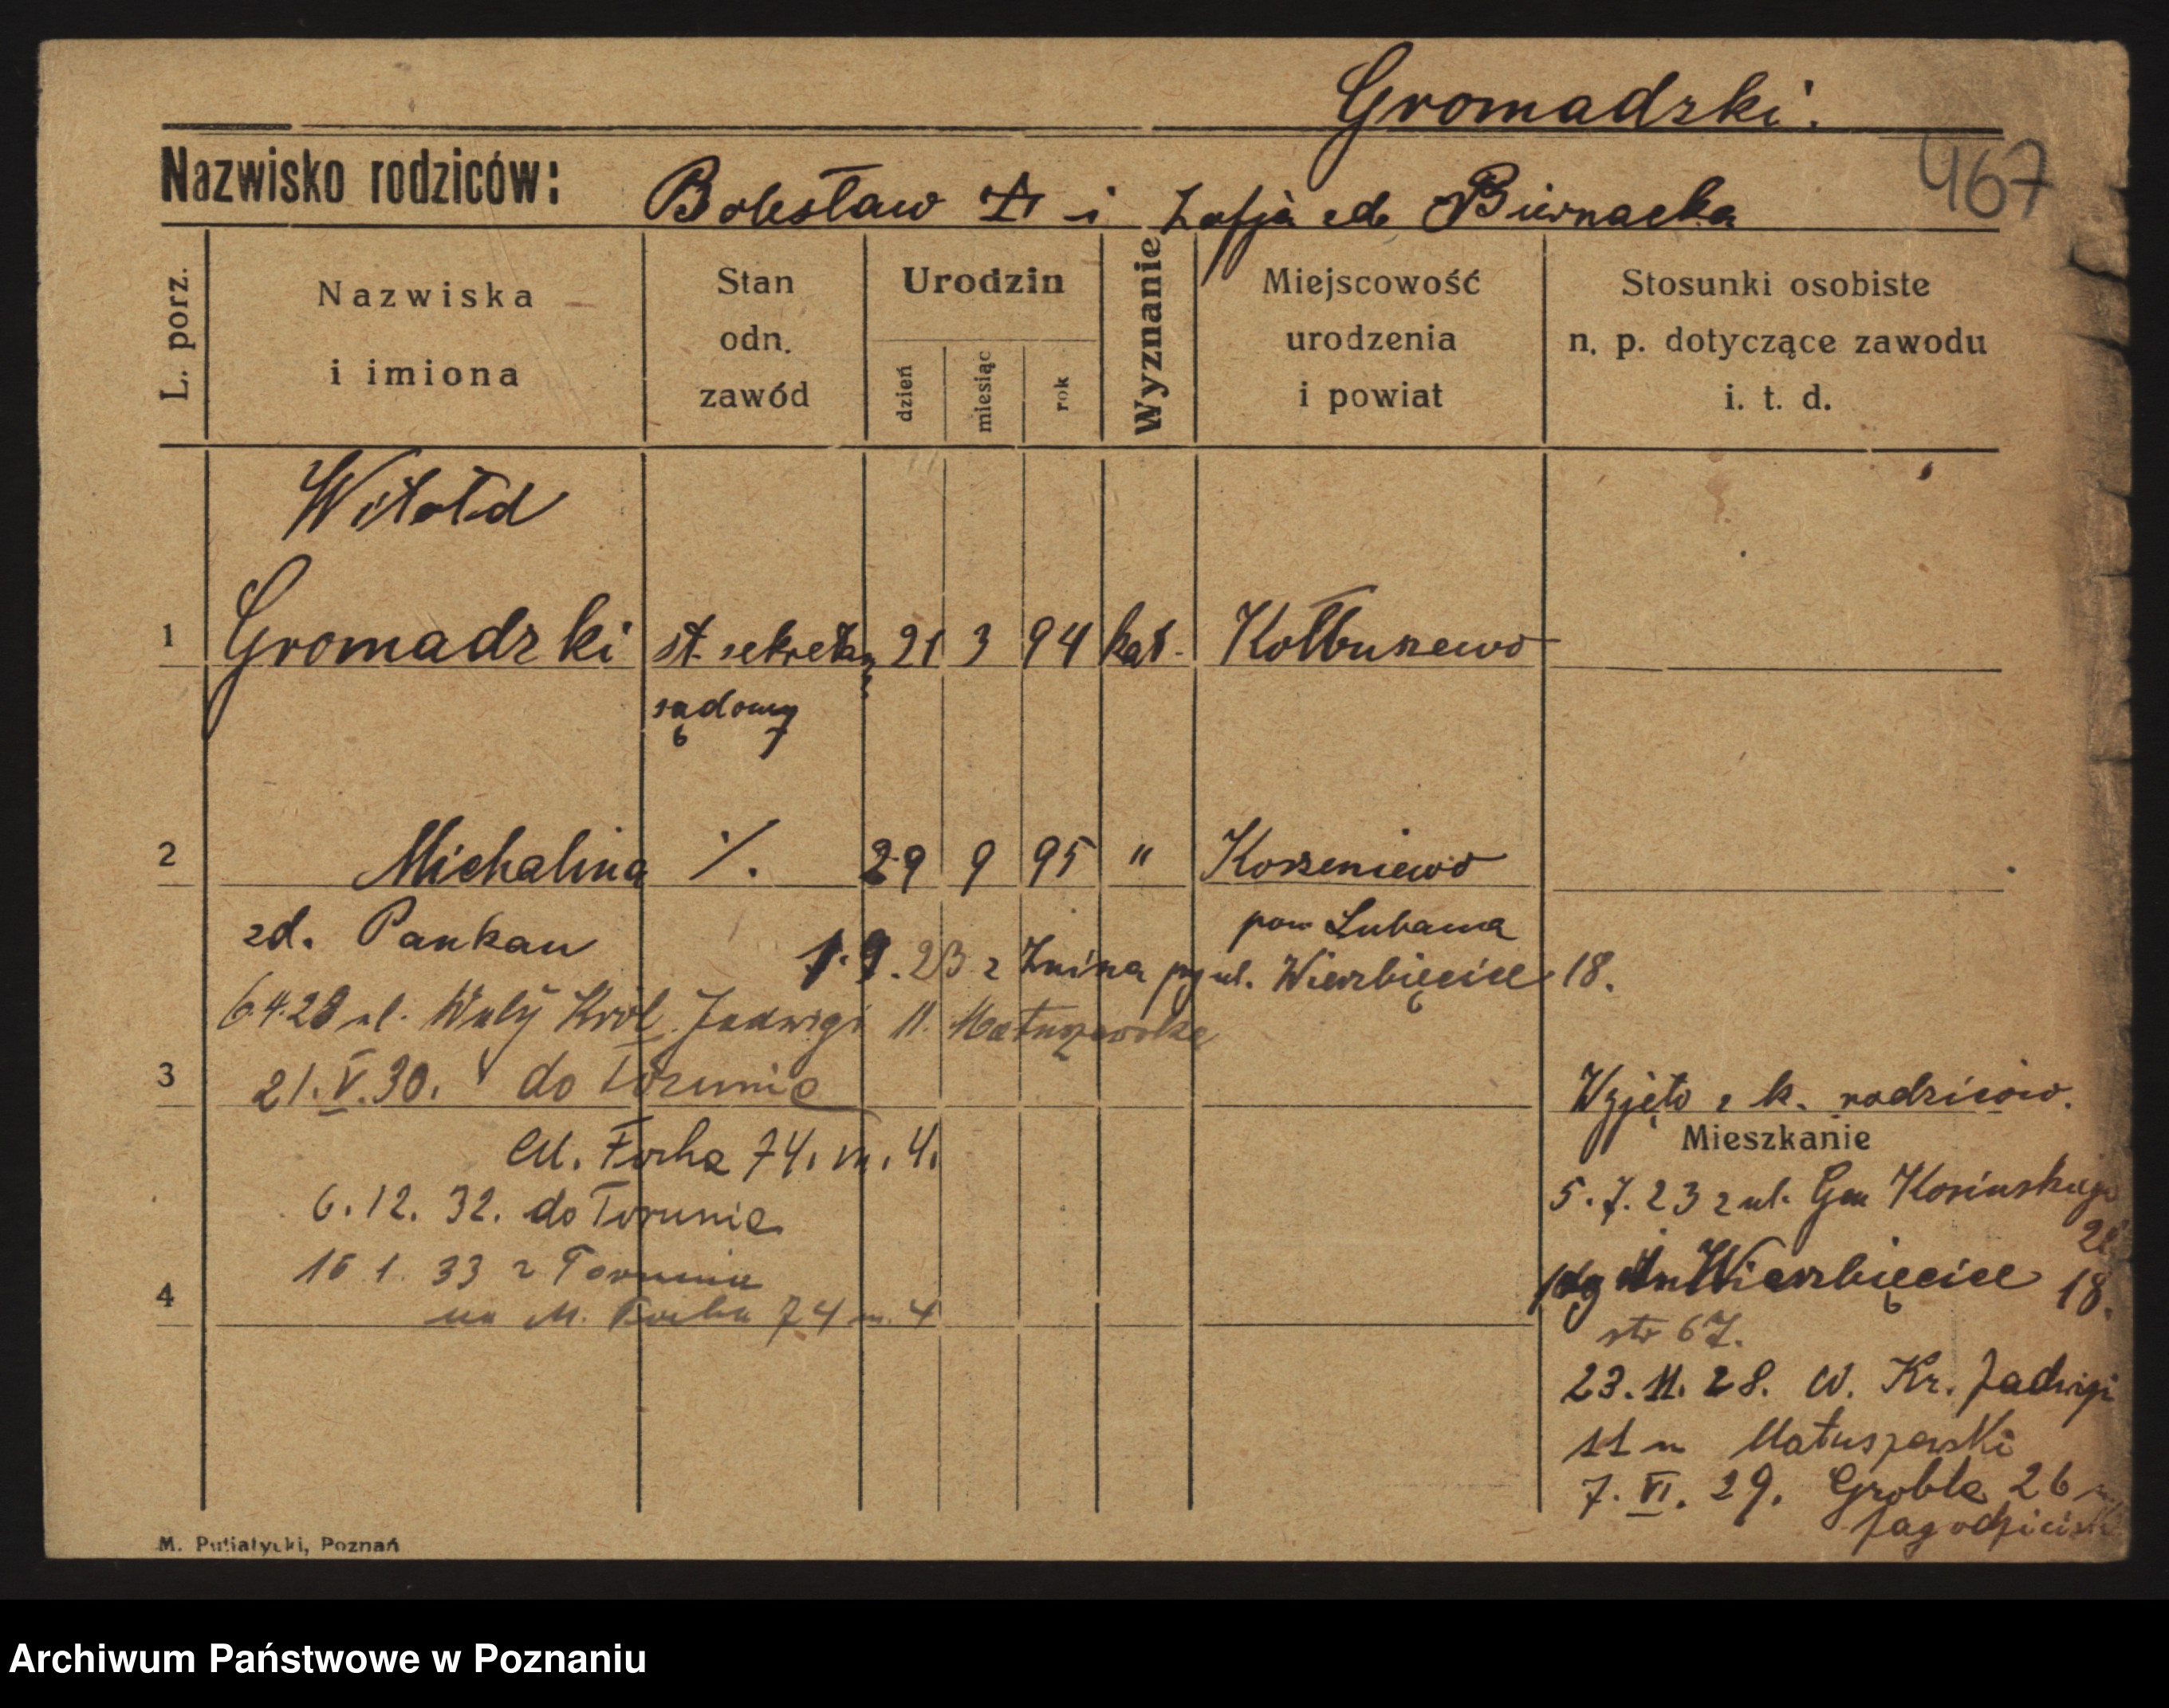 Gromadzki.
467
Nazwisko rodziców:
Bolesław i Zofja zd. Biernacka
L. porz.
Nazwiska
i imiona
Stan
odn.
zawód
Urodzin
dzień
miesiąc
rok
Wyznanie
Miejscowość
urodzenia
i powiat
Stosunki osobiste
n. p. dotyczące zawodu
i. t. d.
Witold
1 Gromadzki st. sekretarz 21 3 94 kat. Kołbuszewo
sądowy
2 Michalina ./. 29 9 95 " Korzeniewo
zd. Pankau pow Lubawa
1.9.23 z Żnina ul. Wierzbięcice 18.
6.4.28 ul. Wały Król. Jadwigi 11. Matuszewska
3 21.V.30. do Torunia
Wyjęto z k. rodziców.
Mieszkanie
M. Focha 74. m. 4.
5.7.23 z ul. Gen Kosinskiego
6.12.32. do Torunia
1.33 z Torunia
Wierzbięcice 18.
4 na M. Focha 74 m. 4
str 67.
23.11.28. W. Kr. Jadwigi
11 m Matuszewski
7.VI.29. Grobla 26
M. Putiatycki, Poznań
Archiwum Państwowe w Poznaniu